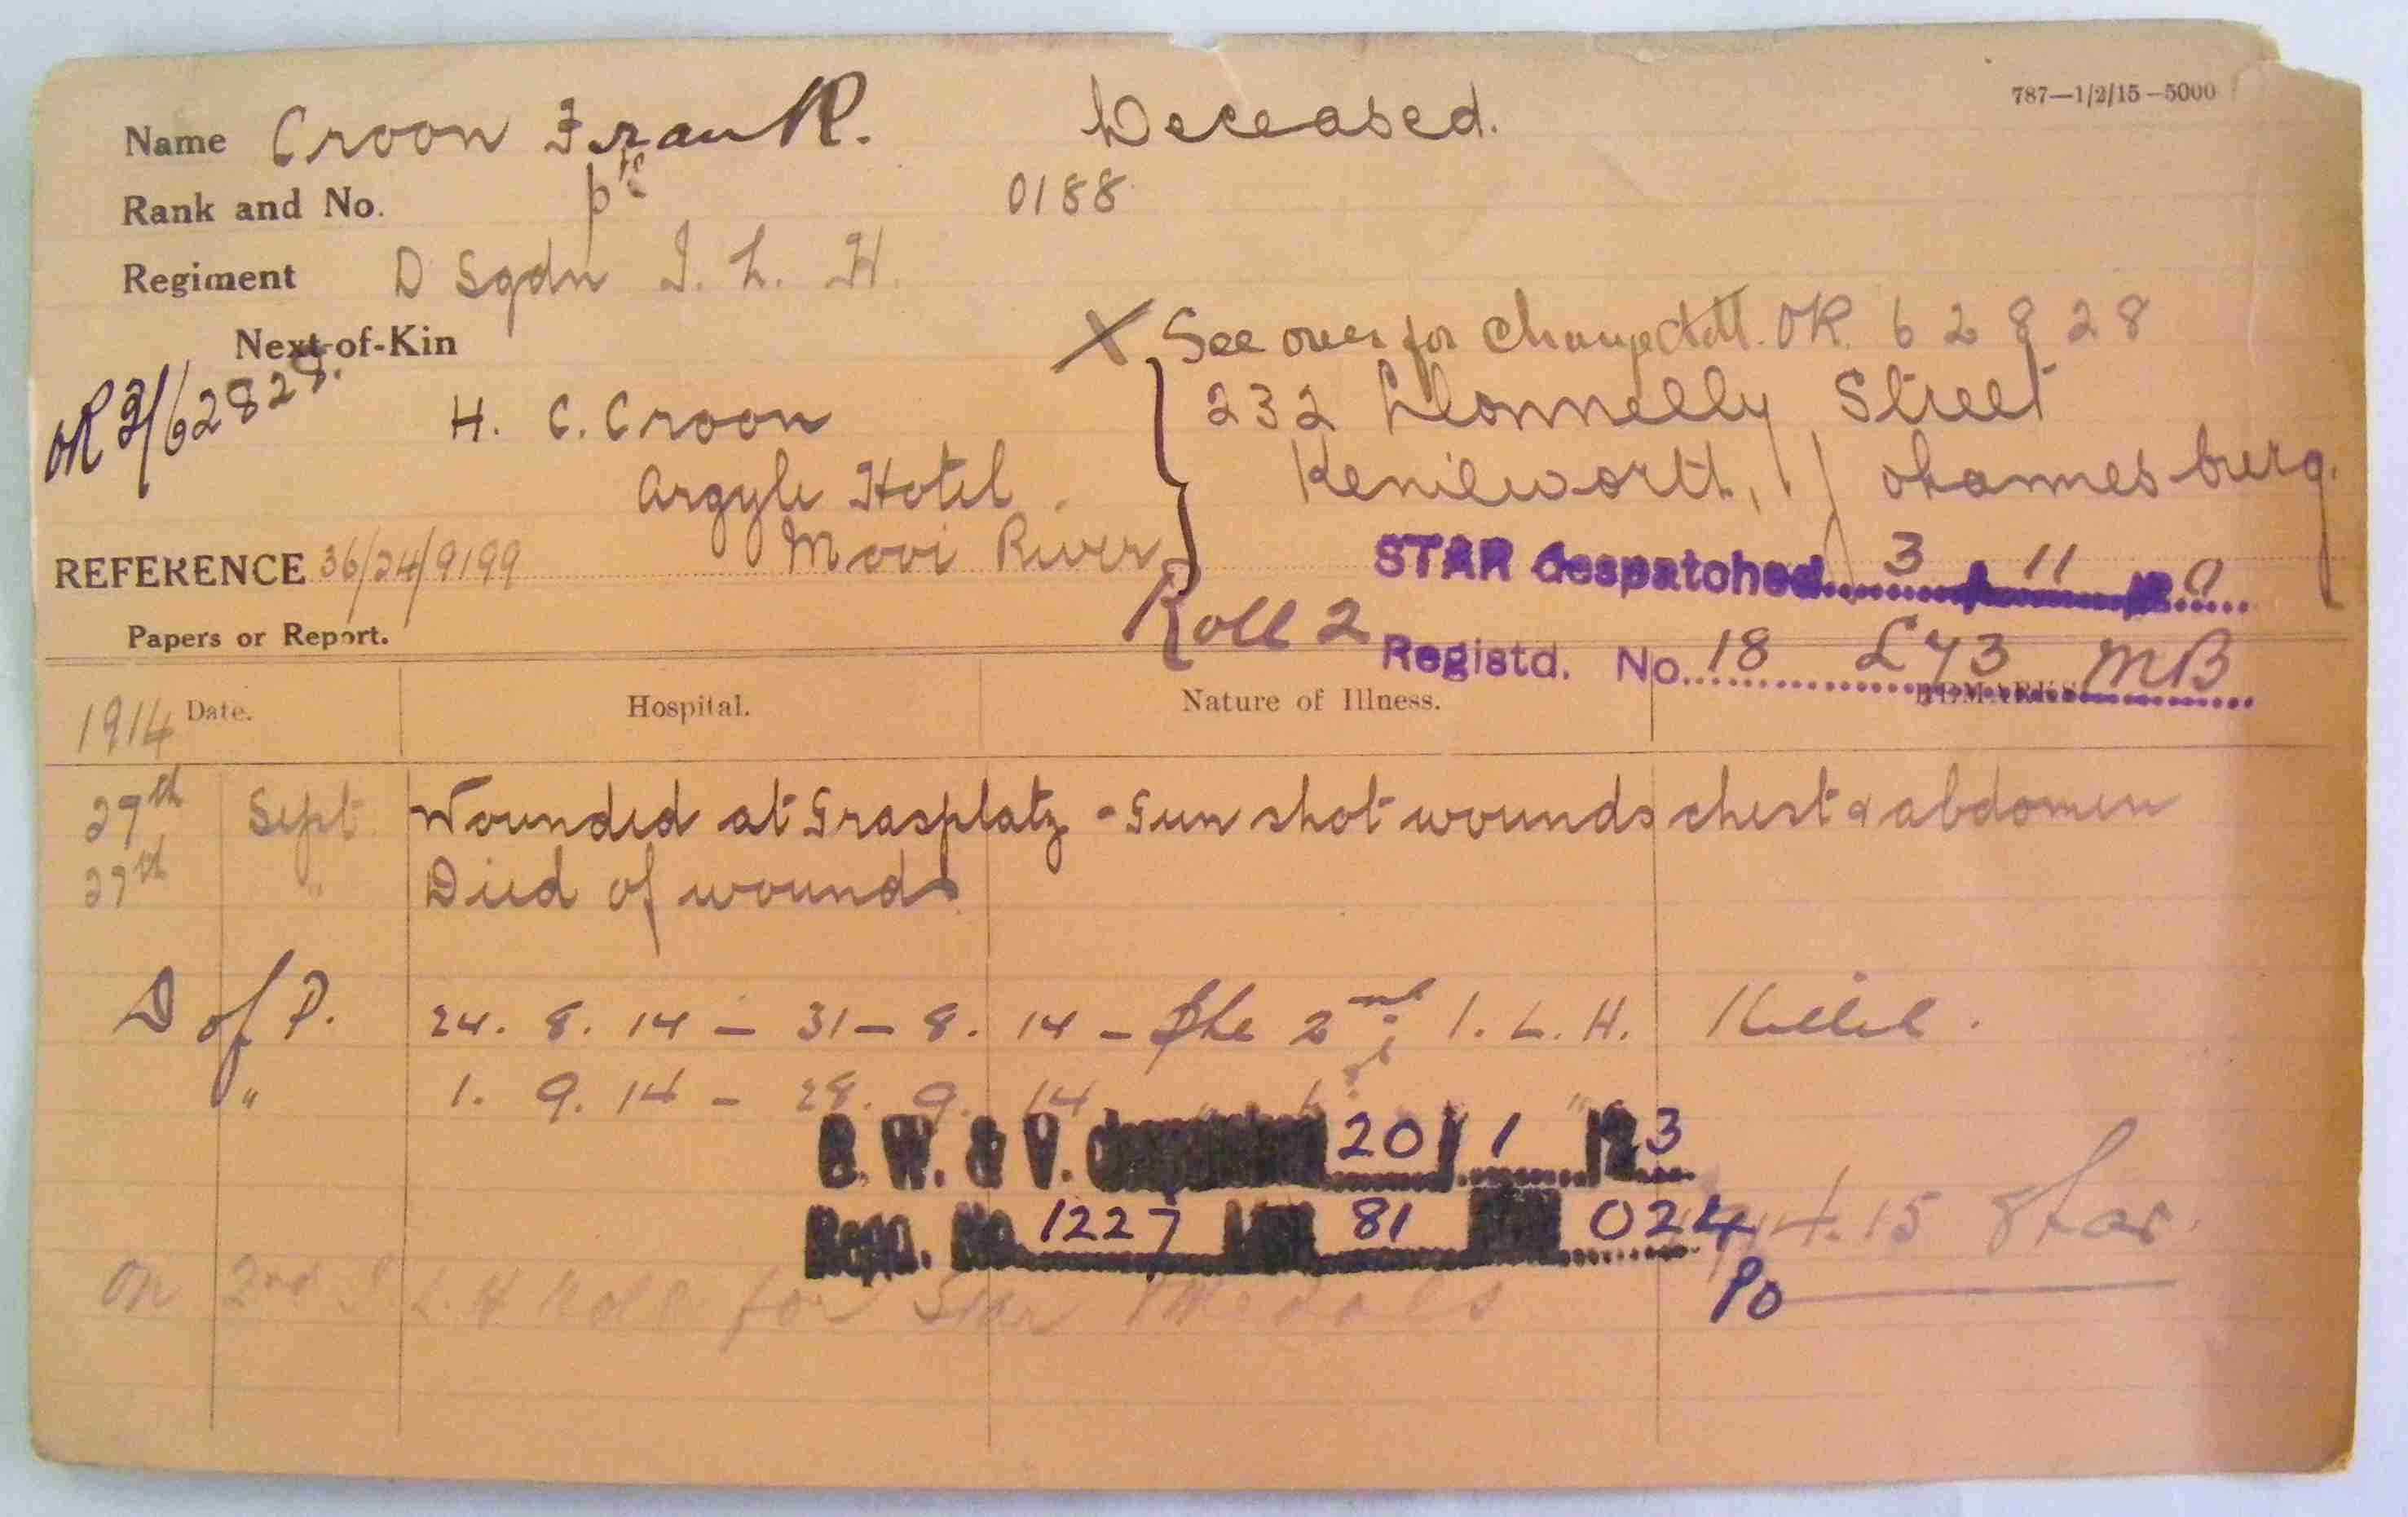 787—1/2/15—5000
Name Croon Frank. Deceased.
Rank and No. pte 0188
Regiment D Sqdn I. L. H.
Next-of-Kin
X See over for change OR 62828
OR 3/62828.
H. C. Croon
232 Donnelly Street
Argyle Hotel
Kenilworth, Johannesburg.
Mooi River
REFERENCE 36/24/9199
STAR despatched 3 11 0
Roll 2
Papers or Report.
Registd. No. 18 £43 MB
1914 Date. Hospital. Nature of Illness. REMARKS
27th Sept Wounded at Grasplatz - Gun shot wounds chest & abdomen
27th " Died of wounds
D of P. 24. 8. 14 — 31—8. 14 — Pte 2nd I. L. H. Killed.
" 1. 9. 14 — 28. 9. 14 " "
B. W. & V. despatched 20/1/23
Regn. No. 1227 81 024
1914.15 Star.
PO
On 2nd I L H Roll for Star Medals